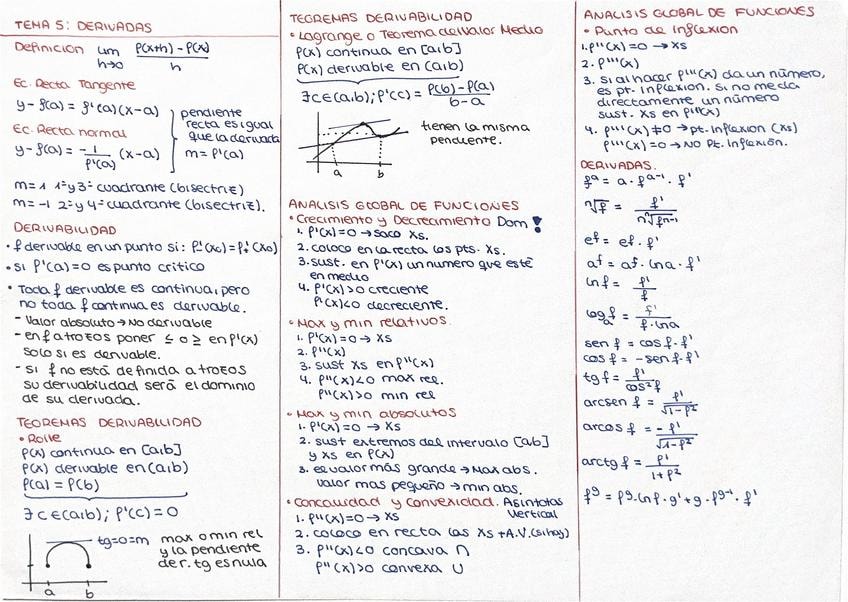 TEMA 5: DERIVADAS
Definición lim h→0 f(x+h) - f(x) / h
Ec. Recta Tangente
y - f(a) = f'(a)(x-a)
Ec. Recta normal
y - f(a) = -1/f'(a) (x-a)
pendiente
recta es igual
que la derivada
m = f'(a)
m=1 1º y 3º cuadrante (bisectriz)
m=-1 2º y 4º cuadrante (bisectriz).
DERIVABILIDAD
• f derivable en un punto si: f'-(x0) = f'+(x0)
• si f'(a)=0 es punto crítico
• Toda f derivable es continua, pero
no toda f continua es derivable.
- Valor absoluto → No derivable
- en f a trozos poner ≤ o ≥ en f'(x)
solo si es derivable.
- si f no está definida a trozos
su derivabilidad será el dominio
de su derivada.
TEOREMAS DERIVABILIDAD
• Rolle
f(x) continua en [a,b]
f(x) derivable en (a,b)
f(a) = f(b)
∃ c ∈ (a,b); f'(c) = 0
tg=0=m
a b
max o min rel
y la pendiente
de r. tg es nula
TEOREMAS DERIVABILIDAD
• Lagrange o Teorema del valor Medio
f(x) continua en [a,b]
f(x) derivable en (a,b)
∃ c ∈ (a,b); f'(c) = f(b) - f(a) / b-a
a b
tienen la misma
pendiente.
ANALISIS GLOBAL DE FUNCIONES
• Crecimiento y Decrecimiento Dom!
1. f'(x)=0 → saco xs.
2. coloco en la recta los pts. xs.
3. sust. en f'(x) un numero que esté
en medio
4. f'(x)>0 creciente
f'(x)<0 decreciente.
• Max y min relativos.
1. f'(x)=0 → xs
2. f''(x)
3. sust xs en f''(x)
4. f''(x)<0 max rel.
f''(x)>0 min rel
• Max y min absolutos
1. f'(x)=0 → xs
2. sust extremos del intervalo [a,b]
y xs en f(x)
3. es valor más grande → Max abs.
valor mas pequeño → min abs.
• Concavidad y convexidad. Asintotas
Vertical
1. f''(x)=0 → xs
2. coloco en recta los xs + A.V. (si hay)
3. f''(x)<0 concava ∩
f''(x)>0 convexa ∪
ANALISIS GLOBAL DE FUNCIONES
• Punto de Inflexion
1. f''(x)=0 → xs
2. f'''(x)
3. si al hacer f'''(x) da un número,
es pt. inflexion. si no me da
directamente un número
sust. xs en f'''(x)
4. f'''(x)≠0 → pt. inflexion (xs)
f'''(x)=0 → NO Pt. Inflexión.
DERIVADAS.
f^a = a · f^(a-1) · f'
n√f = f' / n n√f^(n-1)
e^f = e^f · f'
a^f = a^f · ln a · f'
ln f = f'/f
log_a f = f' / f · ln a
sen f = cos f · f'
cos f = - sen f · f'
tg f = f' / cos² f
arcsen f = f' / √1-f²
arcos f = -f' / √1-f²
arctg f = f' / 1+f²
f^g = f^g · ln f · g' + g · f^(g-1) · f'